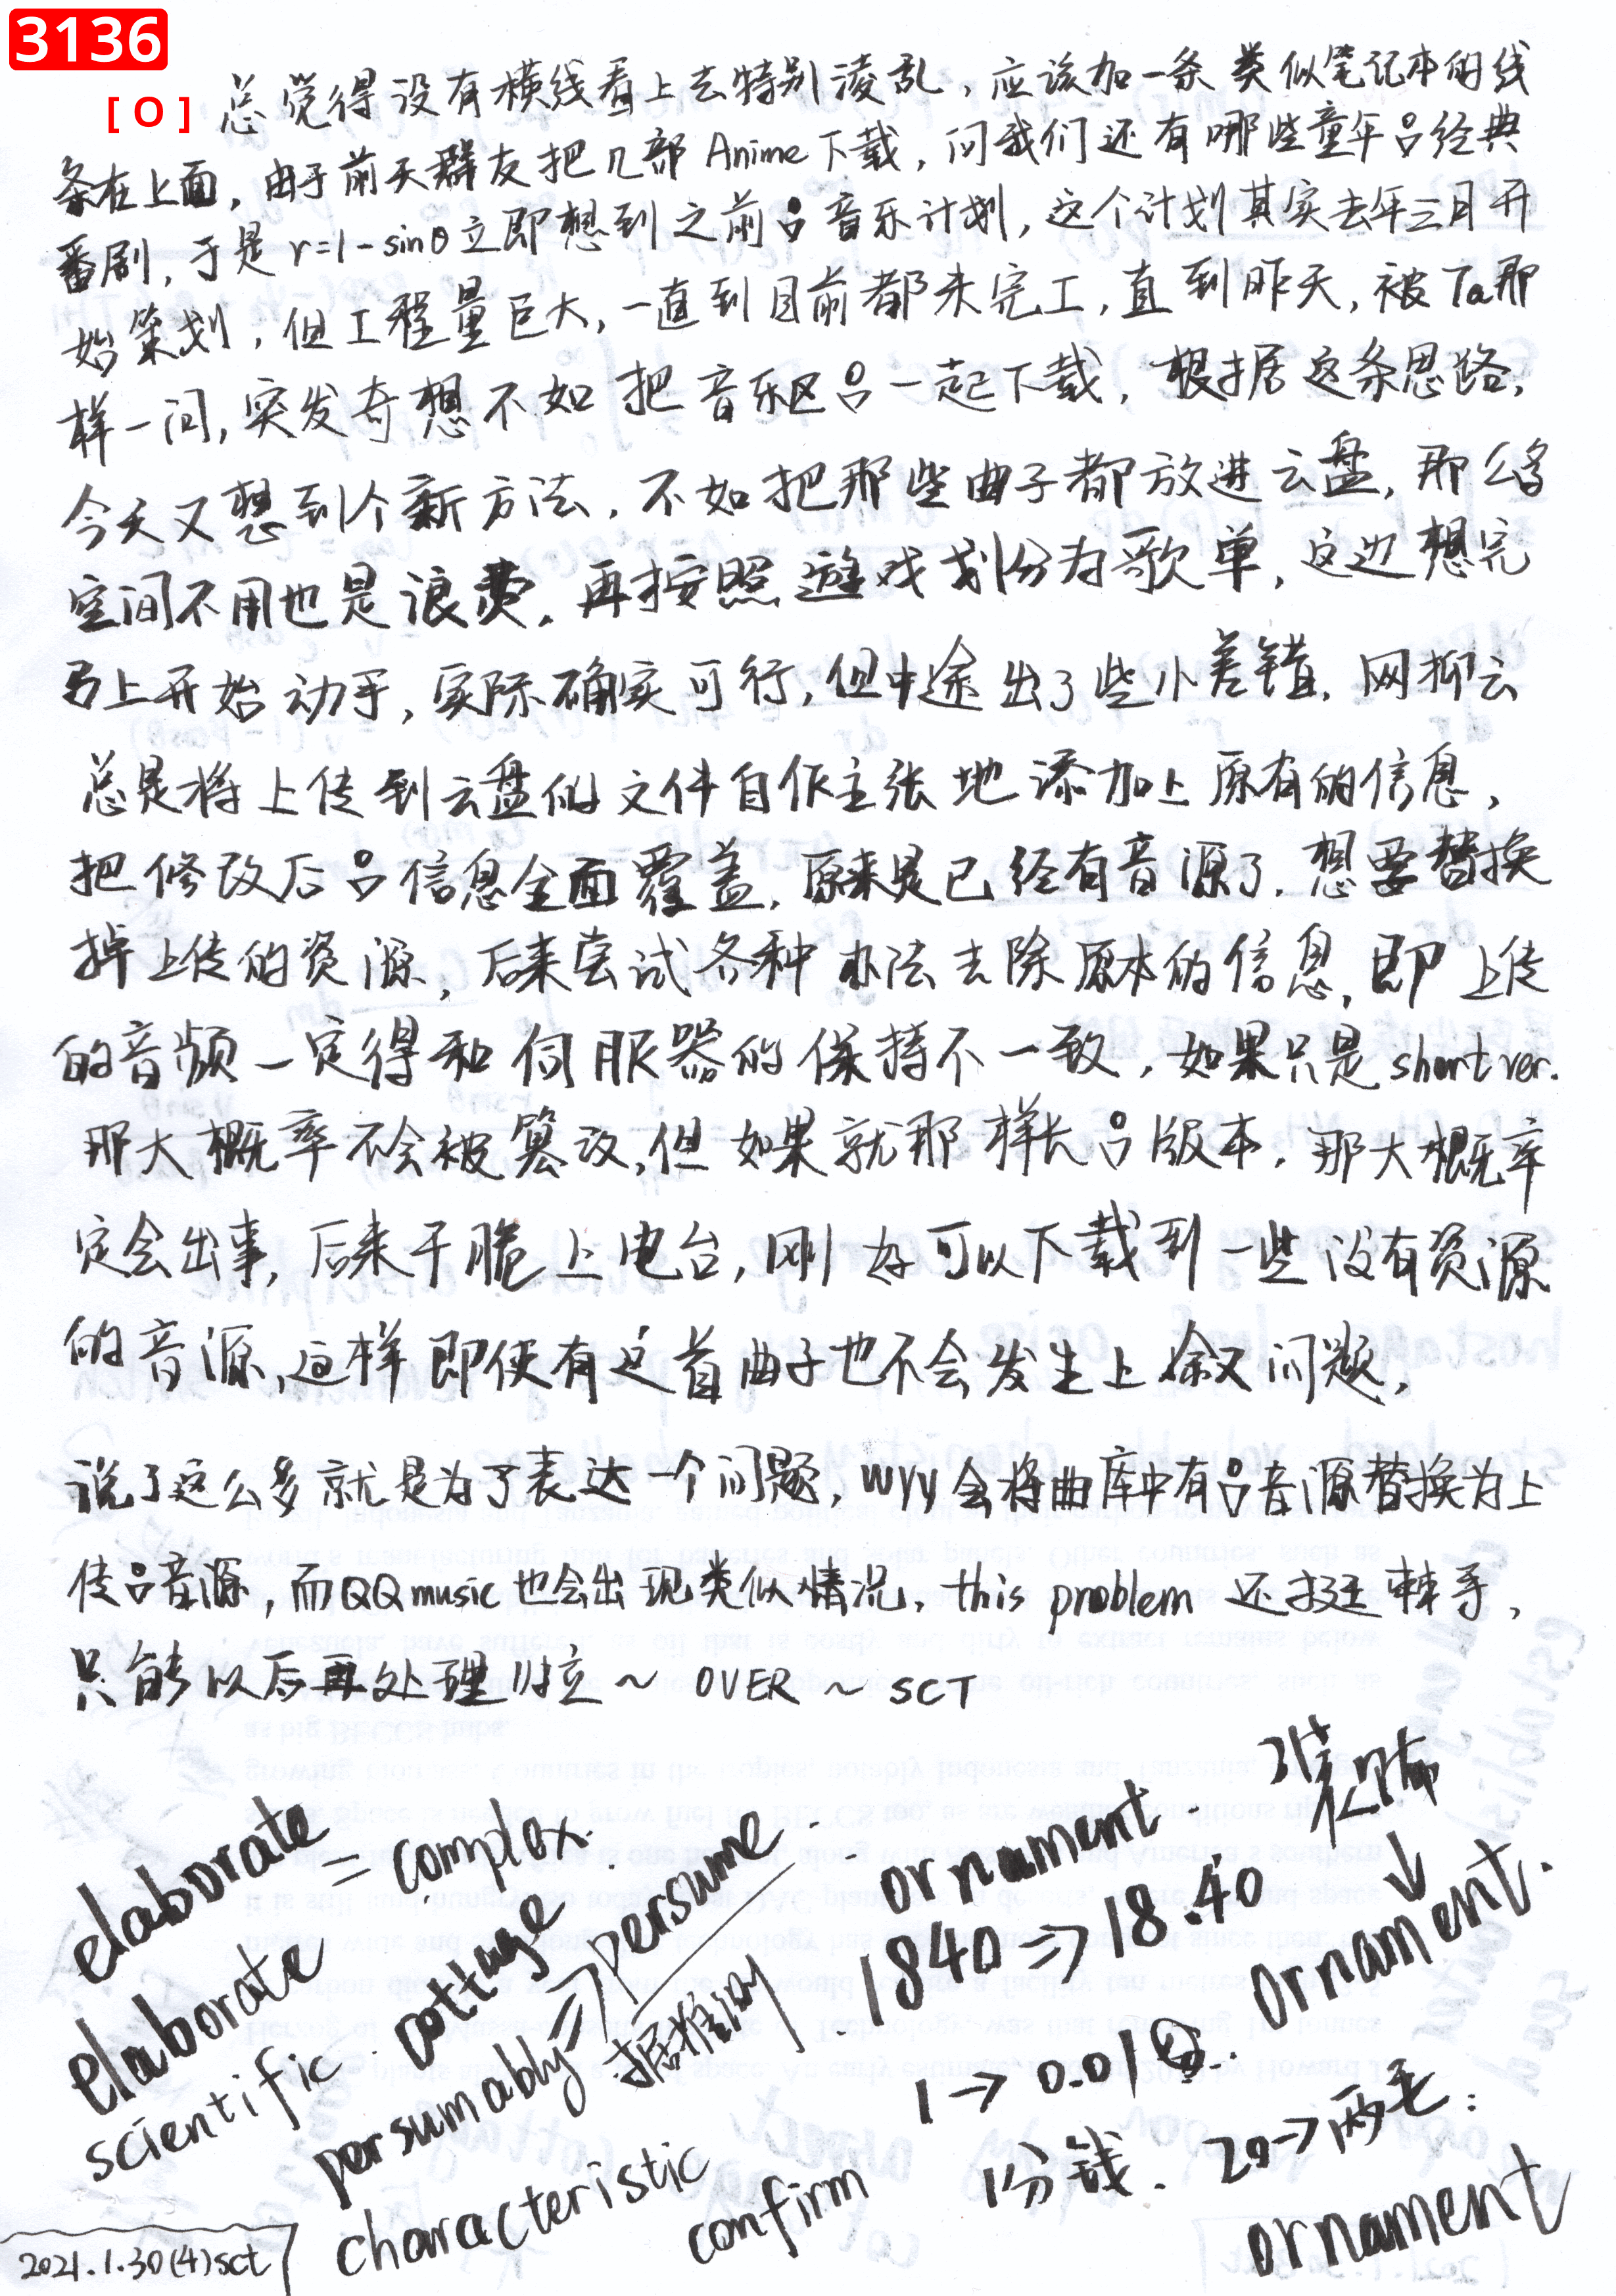 3136
[ O ]
总觉得没有横线看上去特别凌乱，应该加一条类似笔记本的线
条在上面，由于前天群友把几部Anime下载，问我们还有哪些童年吕经典
番剧，于是r=1-sinθ立即想到之前吕音乐计划，这个计划其实去年三月开
始策划，但工程量巨大，一直到目前都未完工，直到昨天，被Ta那
样一问，突发奇想不如把音乐区吕一起下载，根据这条思路，
今天又想到个新方法，不如把那些曲子都放进云盘，那么多
空间不用也是浪费，再按照遊戏划分为歌单，这边想完
马上开始动手，实际确实可行，但中途出了些小差错，网抑云
总是将上传到云盘的文件自作主张地添加上原有的信息，
把修改后吕信息全面覆盖，原来是已经有音源了，想要替换
掉上传的资源，后来尝试各种办法去除原本的信息，即上传
的音频一定得和伺服器的保持不一致，如果只是short ver.
那大概率不会被篡改，但如果就那样长吕版本，那大概率
定会出事，后来干脆上电台，刚好可以下载到一些没有资源
的音源，这样即使有这首曲子也不会发生上叙问题，
说了这么多就是为了表达一个问题，wyy会将曲库中有吕音源替换为上
传吕音源，而QQmusic也会出现类似情况，this problem 还挺棘手，
只能以后再处理啦～OVER～SCT
elaborate = complex.
elaborate
scientific. cottage
persumably => persume.
据推测
characteristic
confirm
ornament. 装饰
1840 => 18.40
1 → 0.01
1分钱. 20→两毛:
ornament.
ornament
2021.1.30(4)sct